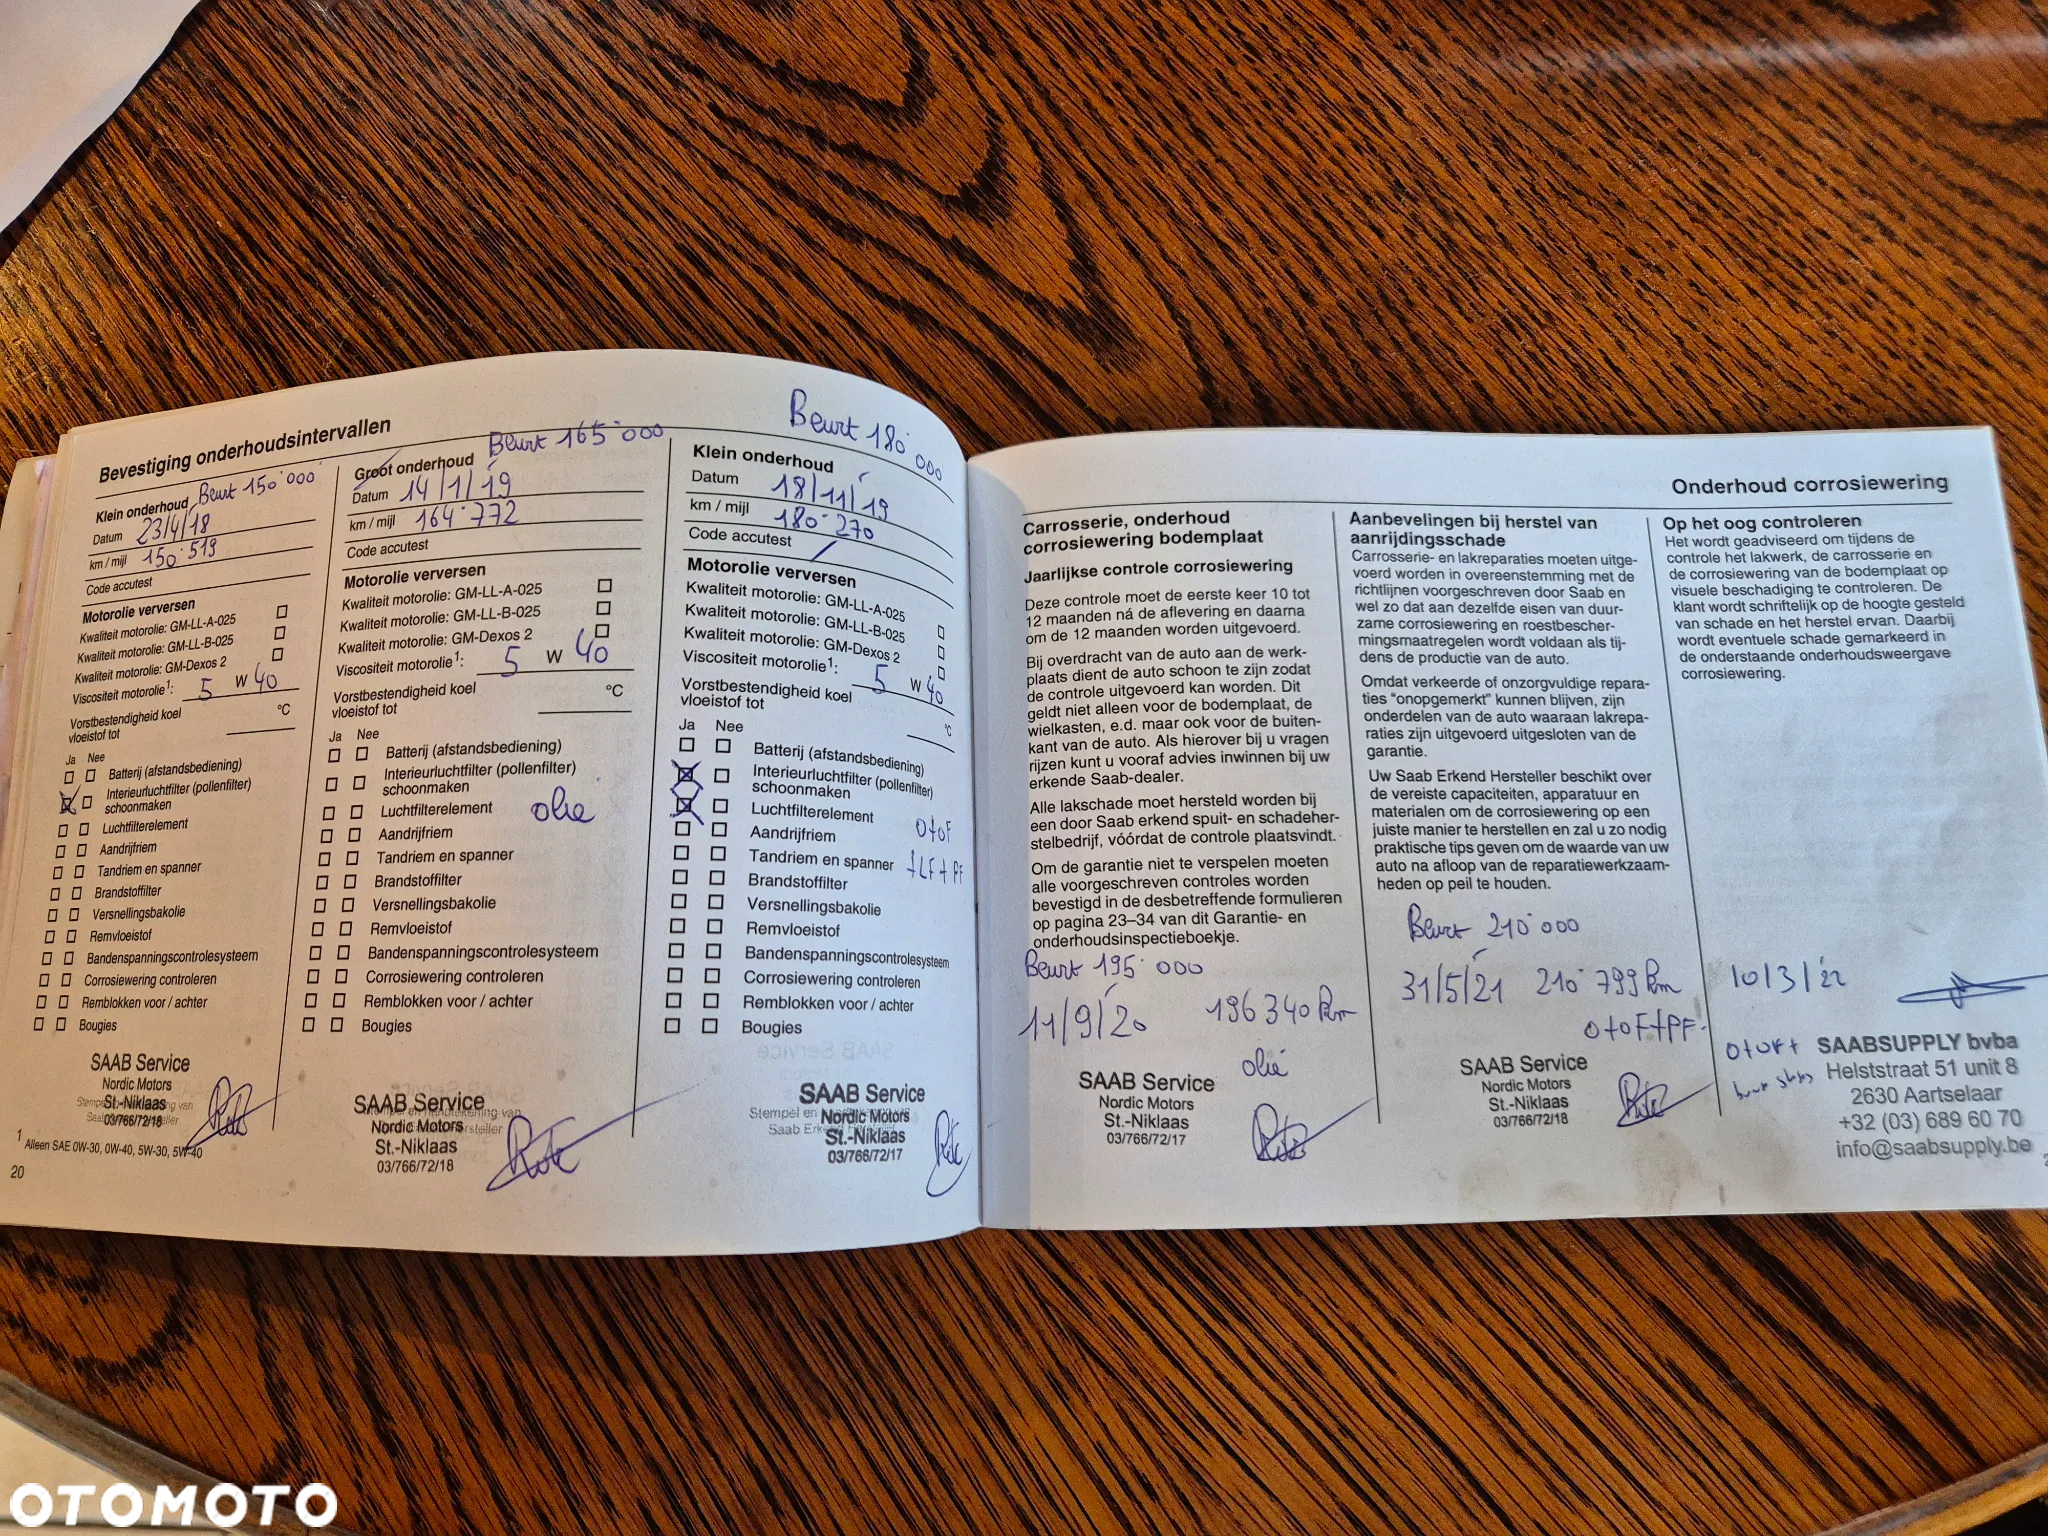 Bevestiging onderhoudsintervallen
Klein onderhoud Beurt 150'000
Datum 23/4/18
km / mijl 150.519
Code accutest
Motorolie verversen
Kwaliteit motorolie: GM-LL-A-025
Kwaliteit motorolie: GM-LL-B-025
Kwaliteit motorolie: GM-Dexos 2
Viscositeit motorolie1: 5 W 40
Vorstbestendigheid koel
vloeistof tot °C
Ja Nee
Batterij (afstandsbediening)
Interieurluchtfilter (pollenfilter)
schoonmaken
Luchtfilterelement
Aandrijfriem
Tandriem en spanner
Brandstoffilter
Versnellingsbakolie
Remvloeistof
Bandenspanningscontrolesysteem
Corrosiewering controleren
Remblokken voor / achter
Bougies
SAAB Service
Nordic Motors
St.-Niklaas
03/766/72/18
1 Alleen SAE 0W-30, 0W-40, 5W-30, 5W-40
20
Beurt 165'000
Groot onderhoud
Datum 14/1/19
km / mijl 164.772
Code accutest
Motorolie verversen
Kwaliteit motorolie: GM-LL-A-025
Kwaliteit motorolie: GM-LL-B-025
Kwaliteit motorolie: GM-Dexos 2
Viscositeit motorolie1: 5 W 40
Vorstbestendigheid koel
vloeistof tot °C
Ja Nee
Batterij (afstandsbediening)
Interieurluchtfilter (pollenfilter)
schoonmaken
Luchtfilterelement olie
Aandrijfriem
Tandriem en spanner
Brandstoffilter
Versnellingsbakolie
Remvloeistof
Bandenspanningscontrolesysteem
Corrosiewering controleren
Remblokken voor / achter
Bougies
SAAB Service
Stempel en handtekening van
Nordic Motors
St.-Niklaas
03/766/72/18
Beurt 180'000
Klein onderhoud
Datum 18/11/19
km / mijl 180.270
Code accutest
Motorolie verversen
Kwaliteit motorolie: GM-LL-A-025
Kwaliteit motorolie: GM-LL-B-025
Kwaliteit motorolie: GM-Dexos 2
Viscositeit motorolie1: 5 W 40
Vorstbestendigheid koel
vloeistof tot °C
Ja Nee
Batterij (afstandsbediening)
Interieurluchtfilter (pollenfilter)
schoonmaken
Luchtfilterelement
Aandrijfriem O+OF
Tandriem en spanner +LF+PF
Brandstoffilter
Versnellingsbakolie
Remvloeistof
Bandenspanningscontrolesysteem
Corrosiewering controleren
Remblokken voor / achter
Bougies
SAAB Service
Nordic Motors
St.-Niklaas
03/766/72/17
Onderhoud corrosiewering
Carrosserie, onderhoud
corrosiewering bodemplaat
Jaarlijkse controle corrosiewering
Deze controle moet de eerste keer 10 tot
12 maanden ná de aflevering en daarna
om de 12 maanden worden uitgevoerd.
Bij overdracht van de auto aan de werk-
plaats dient de auto schoon te zijn zodat
de controle uitgevoerd kan worden. Dit
geldt niet alleen voor de bodemplaat, de
wielkasten, e.d. maar ook voor de buiten-
kant van de auto. Als hierover bij u vragen
rijzen kunt u vooraf advies inwinnen bij uw
erkende Saab-dealer.
Alle lakschade moet hersteld worden bij
een door Saab erkend spuit- en schadeher-
stelbedrijf, vóórdat de controle plaatsvindt.
Om de garantie niet te verspelen moeten
alle voorgeschreven controles worden
bevestigd in de desbetreffende formulieren
op pagina 23–34 van dit Garantie- en
onderhoudsinspectieboekje.
Beurt 195'000
11/9/20 196340 km
olie
SAAB Service
Nordic Motors
St.-Niklaas
03/766/72/17
Aanbevelingen bij herstel van
aanrijdingsschade
Carrosserie- en lakreparaties moeten uitge-
voerd worden in overeenstemming met de
richtlijnen voorgeschreven door Saab en
wel zo dat aan dezelfde eisen van duur-
zame corrosiewering en roestbescher-
mingsmaatregelen wordt voldaan als tij-
dens de productie van de auto.
Omdat verkeerde of onzorgvuldige repara-
ties “onopgemerkt” kunnen blijven, zijn
onderdelen van de auto waaraan lakrepa-
raties zijn uitgevoerd uitgesloten van de
garantie.
Uw Saab Erkend Hersteller beschikt over
de vereiste capaciteiten, apparatuur en
materialen om de corrosiewering op een
juiste manier te herstellen en zal u zo nodig
praktische tips geven om de waarde van uw
auto na afloop van de reparatiewerkzaam-
heden op peil te houden.
Beurt 210'000
31/5/21 210.799 km
O+OF+PF
SAAB Service
Nordic Motors
St.-Niklaas
03/766/72/18
Op het oog controleren
Het wordt geadviseerd om tijdens de
controle het lakwerk, de carrosserie en
de corrosiewering van de bodemplaat op
visuele beschadiging te controleren. De
klant wordt schriftelijk op de hoogte gesteld
van schade en het herstel ervan. Daarbij
wordt eventuele schade gemarkeerd in
de onderstaande onderhoudsweergave
corrosiewering.
10/3/22
SAABSUPPLY bvba
Helststraat 51 unit 8
2630 Aartselaar
+32 (03) 689 60 70
info@saabsupply.be
OTOMOTO